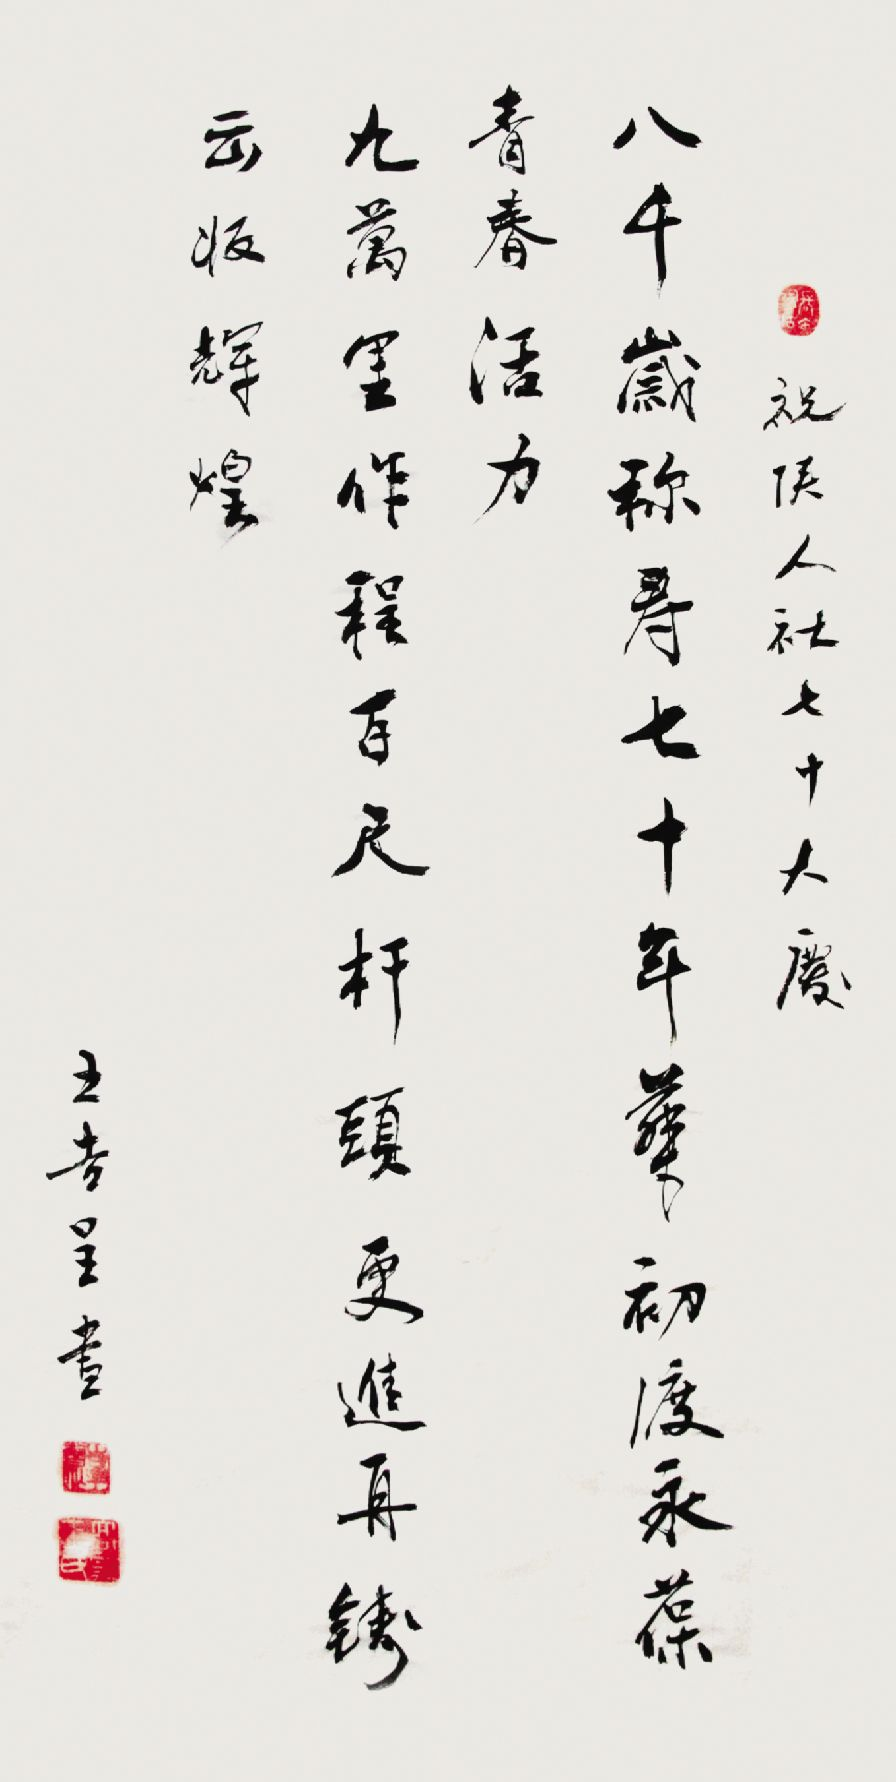 祝陕人社七十大慶
八千歲称寿七十年華初渡永葆
青春活力
九萬里作程百尺杆頭更進再铸
出版輝煌
王吉呈書